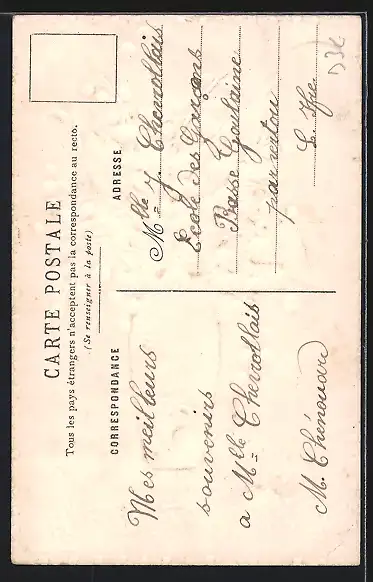 CARTE POSTALE
Tous les pays étrangers n'acceptent pas la correspondance au recto.
(Se renseigner à la poste)
CORRESPONDANCE
Mes meilleurs
souvenirs
a Mlle Chevrollais
M. Thénouard
ADRESSE
Mlle Y. Chevrollais
École des Garçons
Basse Goulaine
par vertou
L. Ifre